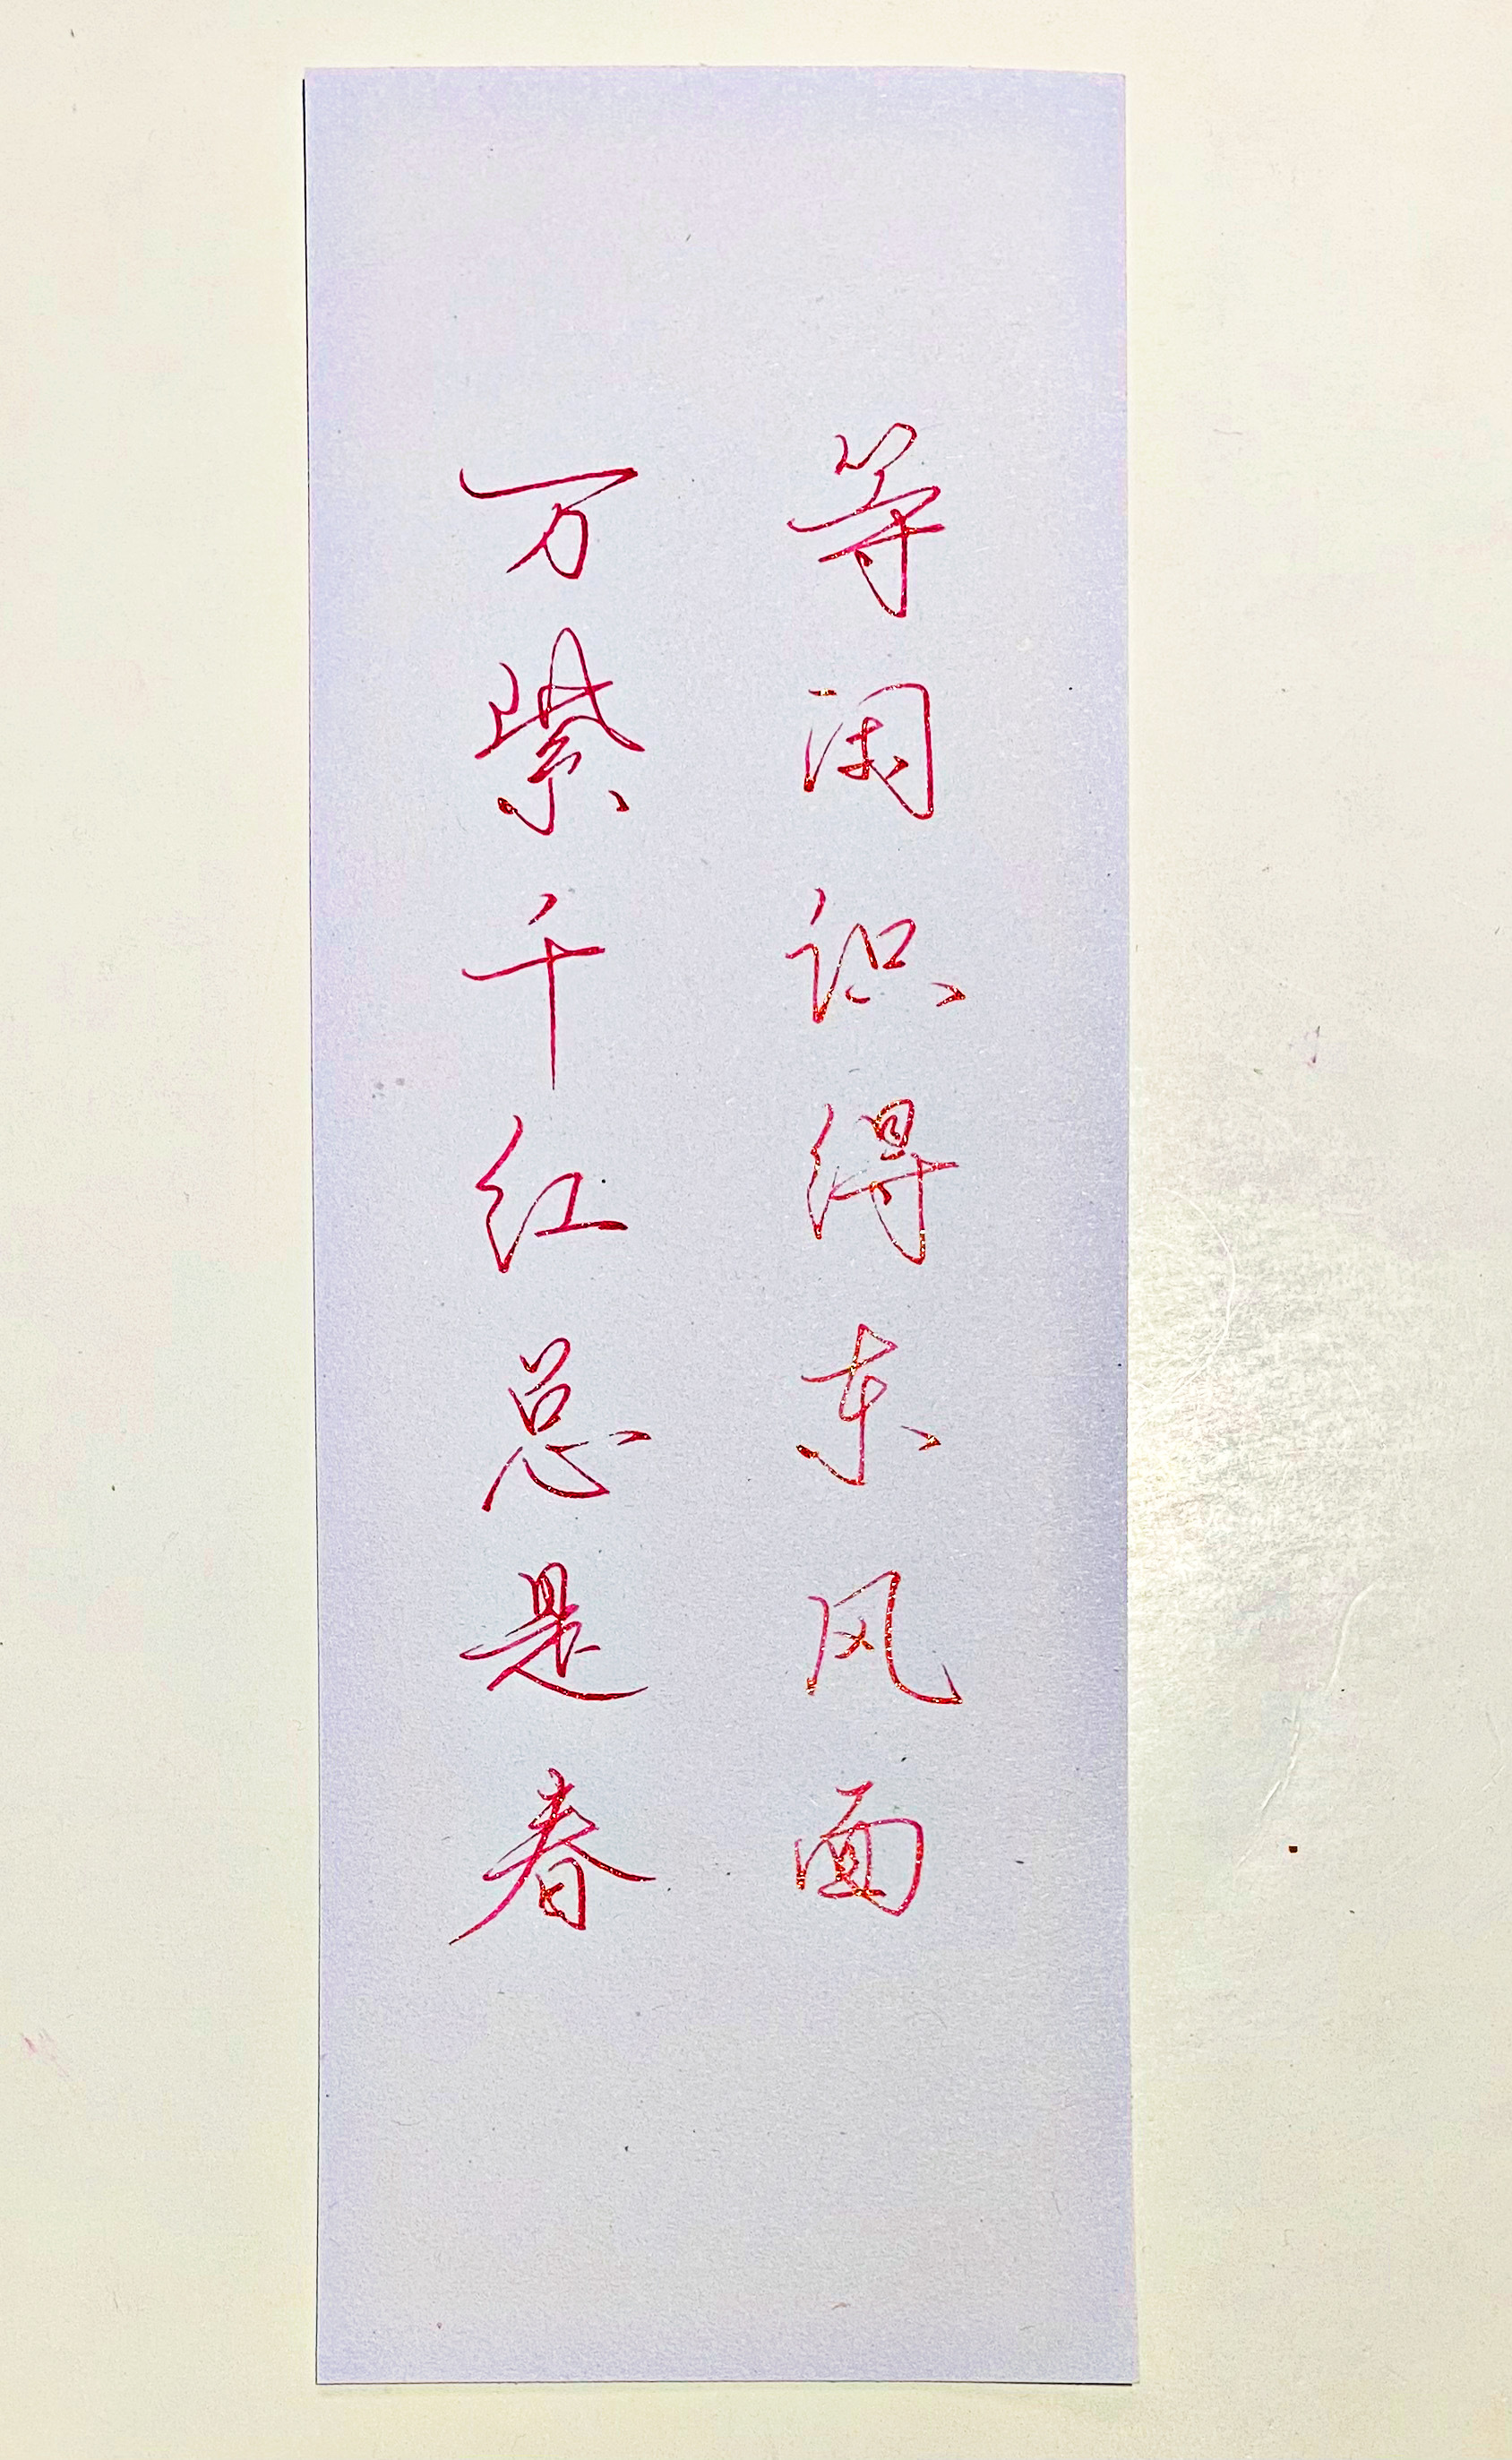 等闲识得东风面
万紫千红总是春